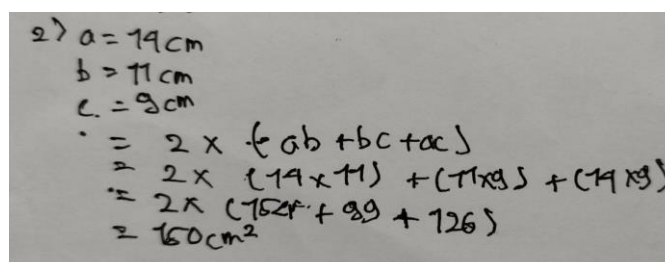 2) a = 14 cm
b = 11 cm
c. = 9 cm
= 2 x { ab + bc + ac )
= 2 x (14 x 11) + (11x9) + (14 x9)
= 2x (154 + 99 + 126)
= 160 cm²